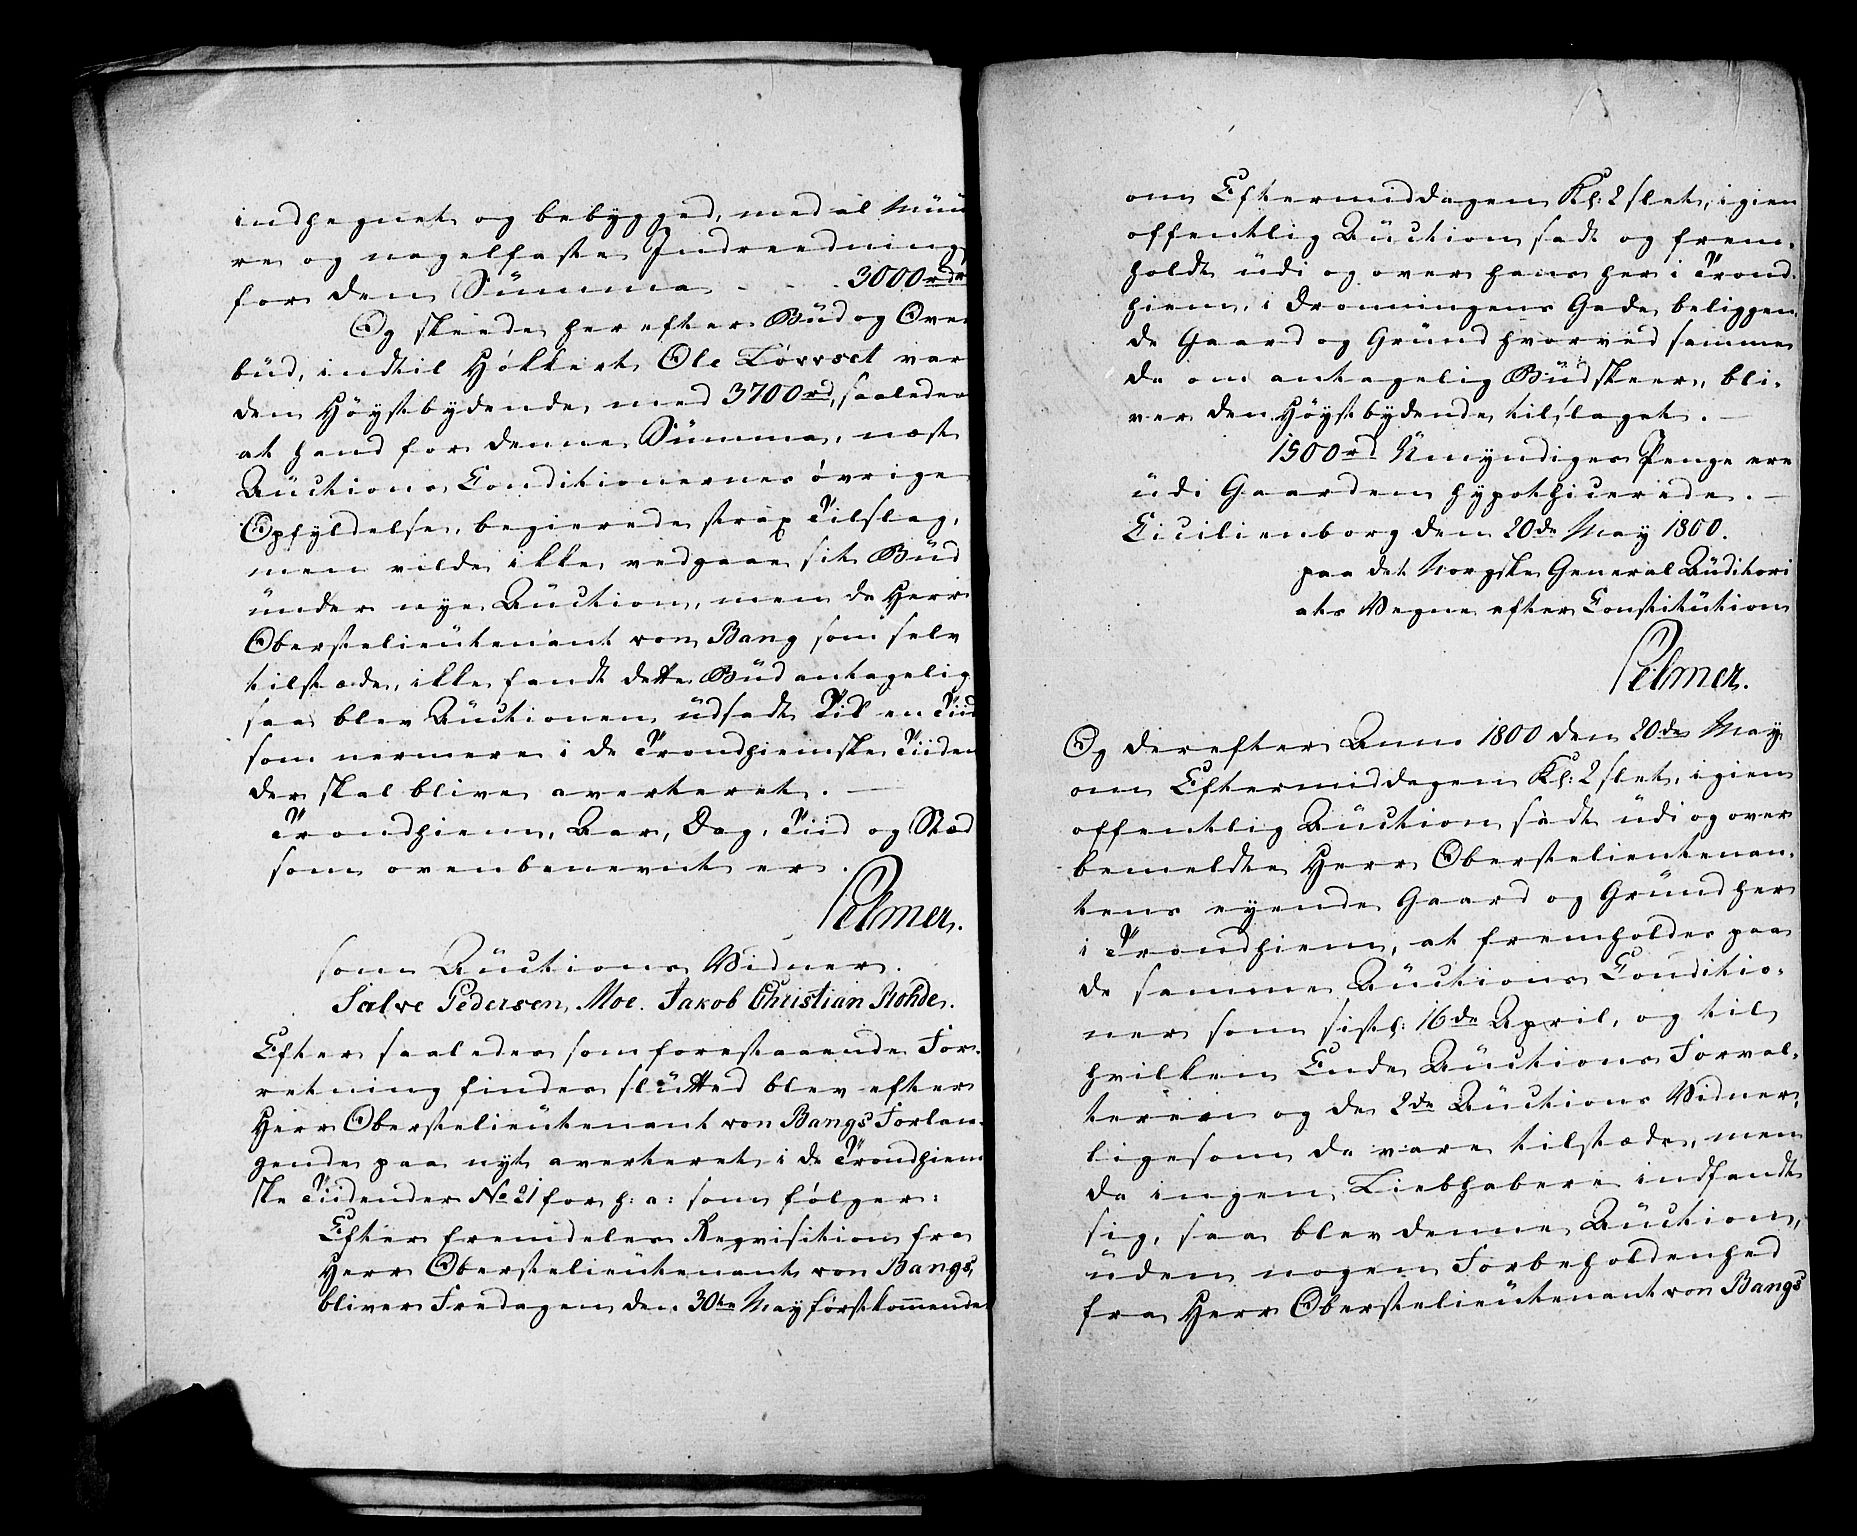 indhegnet og bebygged, med al Muu
re og nagelfaste Indreedning
for den Summa - - - 3000rdr
Og skeede her efter Bud og Over
bud, indtil Høkkert Ole Lövset var
den Höystbydende med 3700rd, saaledes
at hand for denne Summa, næst
Auctions Conditionernes övrige
Opfyldelse, begierede strax Tilslag,
men vilde ikke vedgaae sit Bud
under nye Auction, men da Herr
Oberstelieutenant von Bang som selv
tilstæde, ikke fandt dette Bud antagelig
saa blev Auctionen udsadt Til en Tiid
som nermere i de Trondhiemske Tiiden
der skal blive averteret. —
Trondhiem, Aar, Dag, Tiid og Stæd
som ovenbenevnt er.
Pelmer.
som Auctions Vidner.
Salve Pedersen, Moe. Jakob Christian Rohde.
Efter saaledes som forestaaende For-
retning findes slutted blev efter
Herr Oberstelieutenant von Bangs Forlan-
gende paa nyt averteret i de Trondhiem
ske Tiidender No 21 for h: a: som følger:
Efter fremdeles Reqvisition fra
Herr Oberstelieutenant von Bangs,
bliver Fredagen den 30te May førstkommende
om Eftermiddagen Kl: 2 slet, igien
offentlig Auction sadt og frem-
holdt udi og over hans her i Trond-
hiem, i Dronningens Gade beliggen-
de Gaard og Grund hvorved samme
da om antagelig Bud skeer, bli-
ver den Höystbydende tilslaget. —
1500rd Umyndiges Penge ere
udi Gaarden hypothicerede. —
Cicilienborg den 20de May 1800.
paa det Norgske General Auditori
ats Vegne efter Constitution
Pelmer.
Og derefter Anno 1800 den 20de May
om Eftermiddagen Kl: 2 slet, igien
offentlig Auction sadt udi og over
bemeldte Herr Oberstelieutenan-
tens eyende Gaard og Grund her
i Trondhiem, at fremholdes paa
de samme Auctions Conditio-
ner som sistl: 16de April, og til
hvilken Ende Auctions Forval-
teren og de 2de Auctions Vidner,
ligesom da vare tilstæde, men
da ingen Liebhabere indfandt
sig, saa blev denne Auction,
uden nogen Forbeholdenhed
fra Herr Oberstelieutenant von Bangs